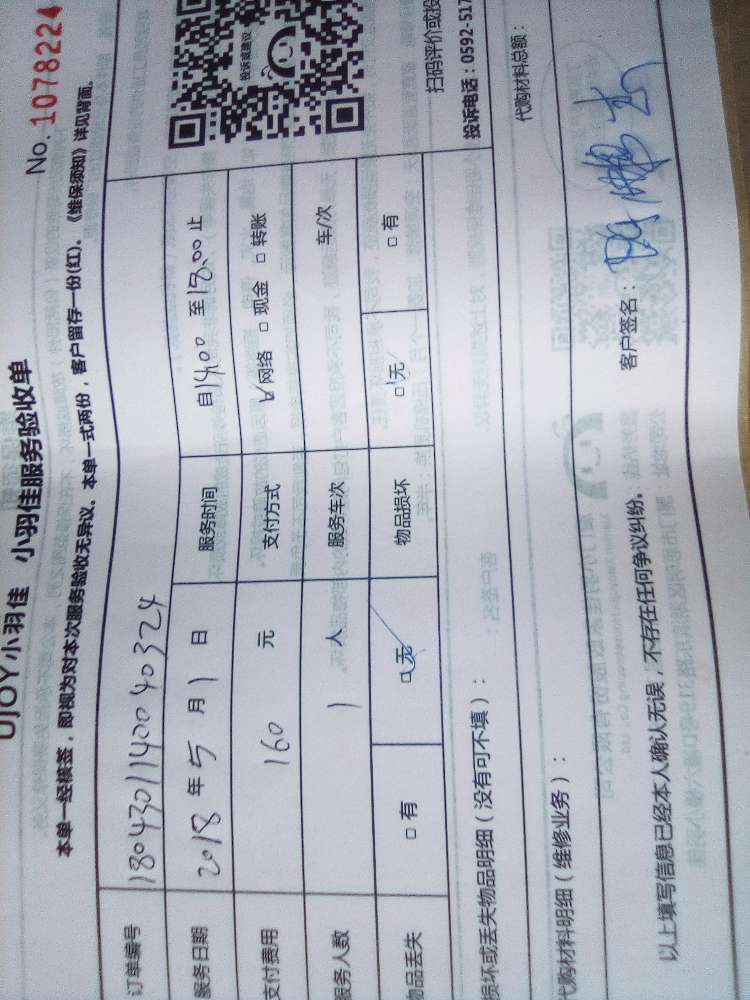 No. 1078224
UJOY小羽佳 小羽佳服务验收单
本单一经核签，即视为对本次服务验收无异议。本单一式两份，客户留存一份(红)。《维保须知》详见背面。
订单编号 1804301140040324
服务日期 2018年5月1日 服务时间 自14:00至18:00止
支付费用 160 元 支付方式 ☑网络 □现金 □转账
服务人数 1 人 服务车次 车/次
物品丢失 □有 ☑无 物品损坏 ☑无 □有
投诉或建议
扫码评价或投
投诉电话：0592-517
损坏或丢失物品明细（没有可不填）：
代购材料明细（维修业务）： 代购材料总额：
以上填写信息已经本人确认无误，不存在任何争议纠纷。 客户签名：